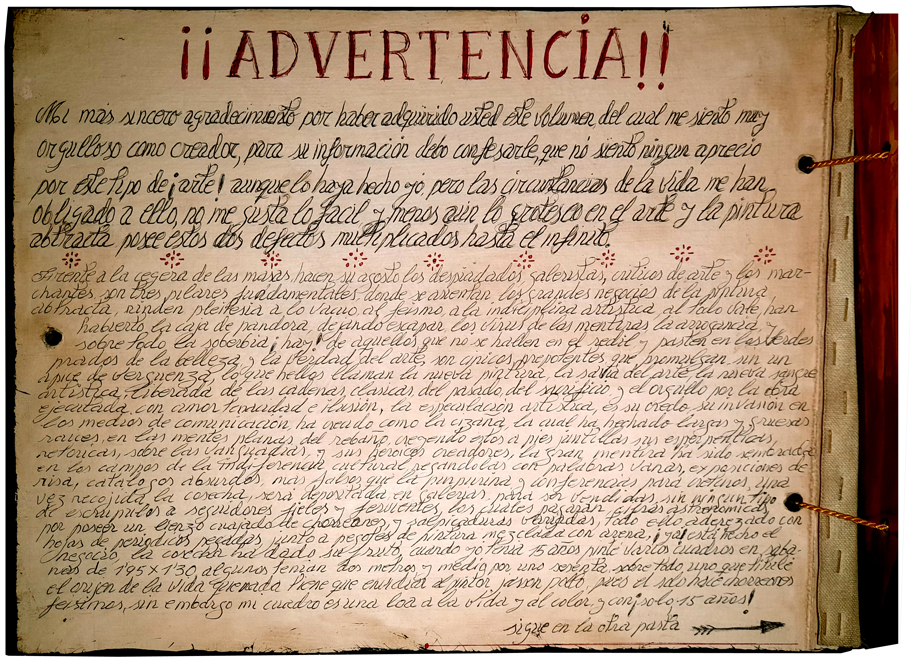 ¡¡ADVERTENCIA!!
Mi más sincero agradecimiento por haber adquirido usted este volumen, del cual me siento muy
orgulloso como creador, para su información debo confesarle, que no siento ningun aprecio
por este tipo de ¡arte! aunque lo haya hecho yo, pero las circustancias de la vida me han
obligado a ello, no me gusta lo facil y menos aún lo grotesco en el arte y la pintura
abstracta posee estos dos defectos multiplicados hasta el infinito.
Frente a la cegera de las masas, hacen su agosto los despiadados galeristas, criticos de arte y los mar-
chantes, son tres pilares fundamentales donde se asientan los grandes negocios de la pintura
abstracta, rinden pleitesia a lo vacuo, al feismo, a la indisciplina artistica, al todo vale, han
habierto la caja de pandora, dejando escapar los virus de las mentiras, la arrogancia, y
sobre todo la soberbia, ¡hay! de aquellos que no se hallen en el redil y pasten en los verdes
prados de la belleza y la verdad del arte, son cinicos, prepotentes que promulgan sin un
apice de verguenza, lo que hellos llaman la nueva pintura, la savia del arte la nueva sangre
artistica, liberada de las cadenas clasicas del pasado, del sacrificio y el orgullo por la obra
ejecutada, con amor tenacidad e ilusión, la especulación artistica, es su credo, su invasión en
los medios de comunicación, ha crecido como la cizaña, la cual ha hechado largas y gruesas
raices, en las mentes planas del rebaño, creyendo estos a pies juntillas sus esperpenticas
retoricas, sobre las vanguardias, y sus heroicos creadores, la gran mentira ha sido sembrada
en los campos de la indiferencia cultural regandolas con palabras vanas, exposiciones de
risa, catalogos absurdos, mas falsos que la purpurina y conferencias para cretinos, una
vez recojida la cosecha, será depositada en galerias para ser vendidas, sin ningun tipo
de escrupulos a seguidores fieles y fervientes, los cuales pagaran cifras astronomicas,
por poseer un lienzo cuajado de chorreones, y salpicaduras variadas, todo ello aderezado con
hojas de periodicos pegadas junto a pegotes de pintura mezclada con arena, ¡ya está hecho el
negocio, la cosecha ha dado su fruto, cuando yo tenia 15 años pinté varios cuadros en saba-
nas de 1'95 x 1'30, algunos tenian dos metros y medio por uno sesenta, sobre todo uno que titulé
el origen de la vida quemada tiene que envidiar al pintor json pollo, pues el solo hace chorreones
feisimos, sin embargo mi cuadro es una loa a la vida y al color, y con ¡solo 15 años!
sigue en la otra pasta